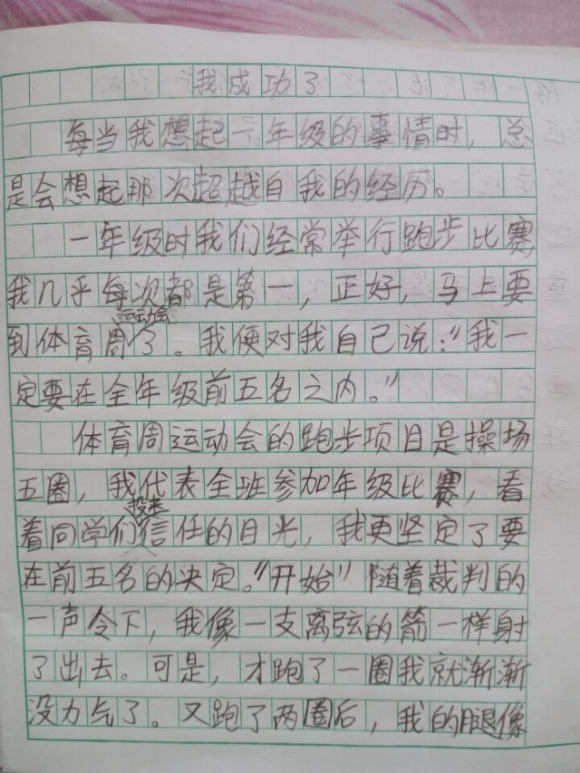 我成功了
每当我想起一年级的事情时，总
是会想起那次超越自我的经历。
一年级时我们经常举行跑步比赛
我几乎每次都是第一，正好，马上要
运动会
到体育周了。我便对我自己说："我一
定要在全年级前五名之内。"
体育周运动会的跑步项目是操场
五圈，我代表全班参加年级比赛，看
投来
着同学们信任的目光，我更坚定了要
在前五名的决定。"开始"随着裁判的
一声令下，我像一支离弦的箭一样射
了出去。可是，才跑了一圈我就渐渐
没力气了。又跑了两圈后，我的腿像